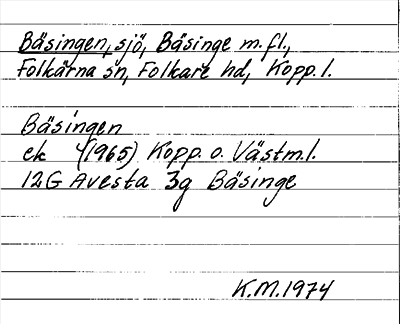 Bäsingen, sjö, Bäsinge m.fl.,
Folkärna sn, Folkare hd, Kopp. l.
Bäsingen
ek 4(1965) Kopp. o. Västm.l.
12G Avesta 3g Bäsinge
K.M.1974